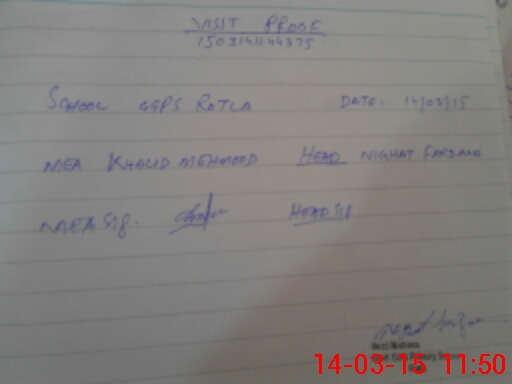 VISIT PROOF
150314114437S
SCHOOL GGPS ROTLA DATE. 14/03/15
MEA KHALID MEHMOOD HEAD NIGHAT FARZANA
MEA Sig. HEAD SIG
Head Mistress
14-03-15 11:50